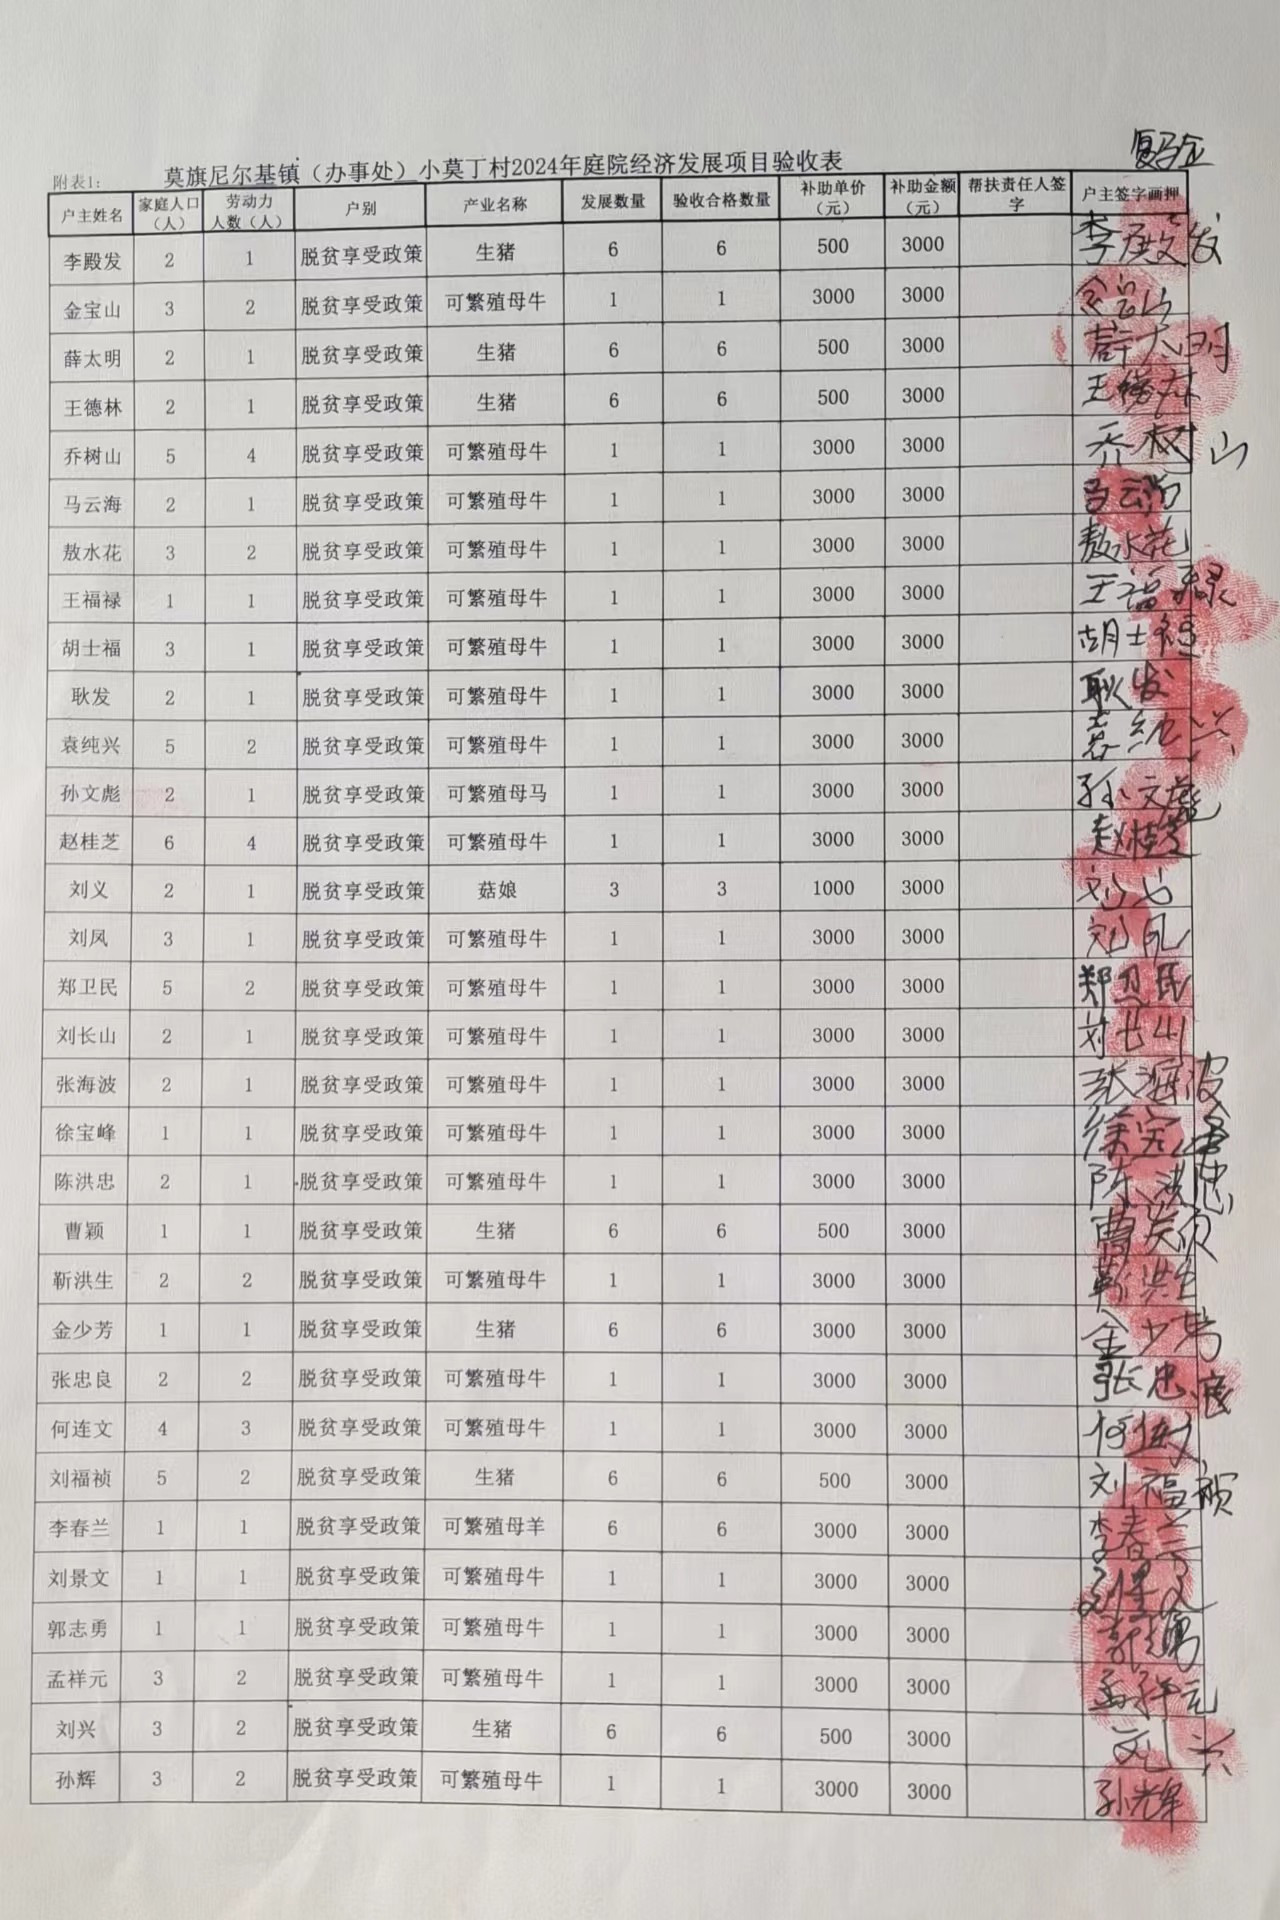 附表1:
莫旗尼尔基镇（办事处）小莫丁村2024年庭院经济发展项目验收表
户主姓名 家庭人口（人） 劳动力人数（人） 户别 产业名称 发展数量 验收合格数量 补助单价（元） 补助金额（元） 帮扶责任人签字 户主签字画押
李殿发 2 1 脱贫享受政策 生猪 6 6 500 3000 李殿发
金宝山 3 2 脱贫享受政策 可繁殖母牛 1 1 3000 3000 金宝山
薛太明 2 1 脱贫享受政策 生猪 6 6 500 3000 薛太明
王德林 2 1 脱贫享受政策 生猪 6 6 500 3000 王德林
乔树山 5 4 脱贫享受政策 可繁殖母牛 1 1 3000 3000 乔树山
马云海 2 1 脱贫享受政策 可繁殖母牛 1 1 3000 3000 马云海
敖水花 3 2 脱贫享受政策 可繁殖母牛 1 1 3000 3000 敖水花
王福禄 1 1 脱贫享受政策 可繁殖母牛 1 1 3000 3000 王福禄
胡士福 3 1 脱贫享受政策 可繁殖母牛 1 1 3000 3000 胡士福
耿发 2 1 脱贫享受政策 可繁殖母牛 1 1 3000 3000 耿发
袁纯兴 5 2 脱贫享受政策 可繁殖母牛 1 1 3000 3000 袁纯兴
孙文彪 2 1 脱贫享受政策 可繁殖母马 1 1 3000 3000 孙文彪
赵桂芝 6 4 脱贫享受政策 可繁殖母牛 1 1 3000 3000 赵桂芝
刘义 2 1 脱贫享受政策 菇娘 3 3 1000 3000 刘义
刘凤 3 1 脱贫享受政策 可繁殖母牛 1 1 3000 3000 刘凤
郑卫民 5 2 脱贫享受政策 可繁殖母牛 1 1 3000 3000 郑卫民
刘长山 2 1 脱贫享受政策 可繁殖母牛 1 1 3000 3000 刘长山
张海波 2 1 脱贫享受政策 可繁殖母牛 1 1 3000 3000 张海波
徐宝峰 1 1 脱贫享受政策 可繁殖母牛 1 1 3000 3000 徐宝峰
陈洪忠 2 1 脱贫享受政策 可繁殖母牛 1 1 3000 3000 陈洪忠
曹颖 1 1 脱贫享受政策 生猪 6 6 500 3000 曹颖
靳洪生 2 2 脱贫享受政策 可繁殖母牛 1 1 3000 3000 靳洪生
金少芳 1 1 脱贫享受政策 生猪 6 6 3000 3000 金少芳
张忠良 2 2 脱贫享受政策 可繁殖母牛 1 1 3000 3000 张忠
何连文 4 3 脱贫享受政策 可繁殖母牛 1 1 3000 3000 何连文
刘福祯 5 2 脱贫享受政策 生猪 6 6 500 3000 刘福祯
李春兰 1 1 脱贫享受政策 可繁殖母羊 6 6 3000 3000 李春兰
刘景文 1 1 脱贫享受政策 可繁殖母牛 1 1 3000 3000 刘景文
郭志勇 1 1 脱贫享受政策 可繁殖母牛 1 1 3000 3000 郭志勇
孟祥元 3 2 脱贫享受政策 可繁殖母牛 1 1 3000 3000 孟祥元
刘兴 3 2 脱贫享受政策 生猪 6 6 500 3000 刘兴
孙辉 3 2 脱贫享受政策 可繁殖母牛 1 1 3000 3000 孙辉